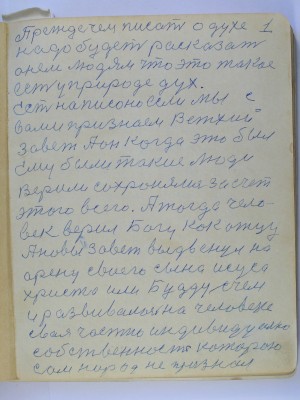 Прежде чем писат о духе 1
надо будет расказат
о нем людям что это такое
ест у природе дух.
Ест написоно если мы с
вами признаем Ветхий
завет А он когда это был
ему были такие люди
верили сохроняли за счет
этого всего. А тогда чело-
век верил Богу как отцу
А новый завет выдвенул на
арену своего сына исуса
христа или Будду с чем
и развивалося на человеке
своя частно индивидуално
собственность которою
сам народ не признал